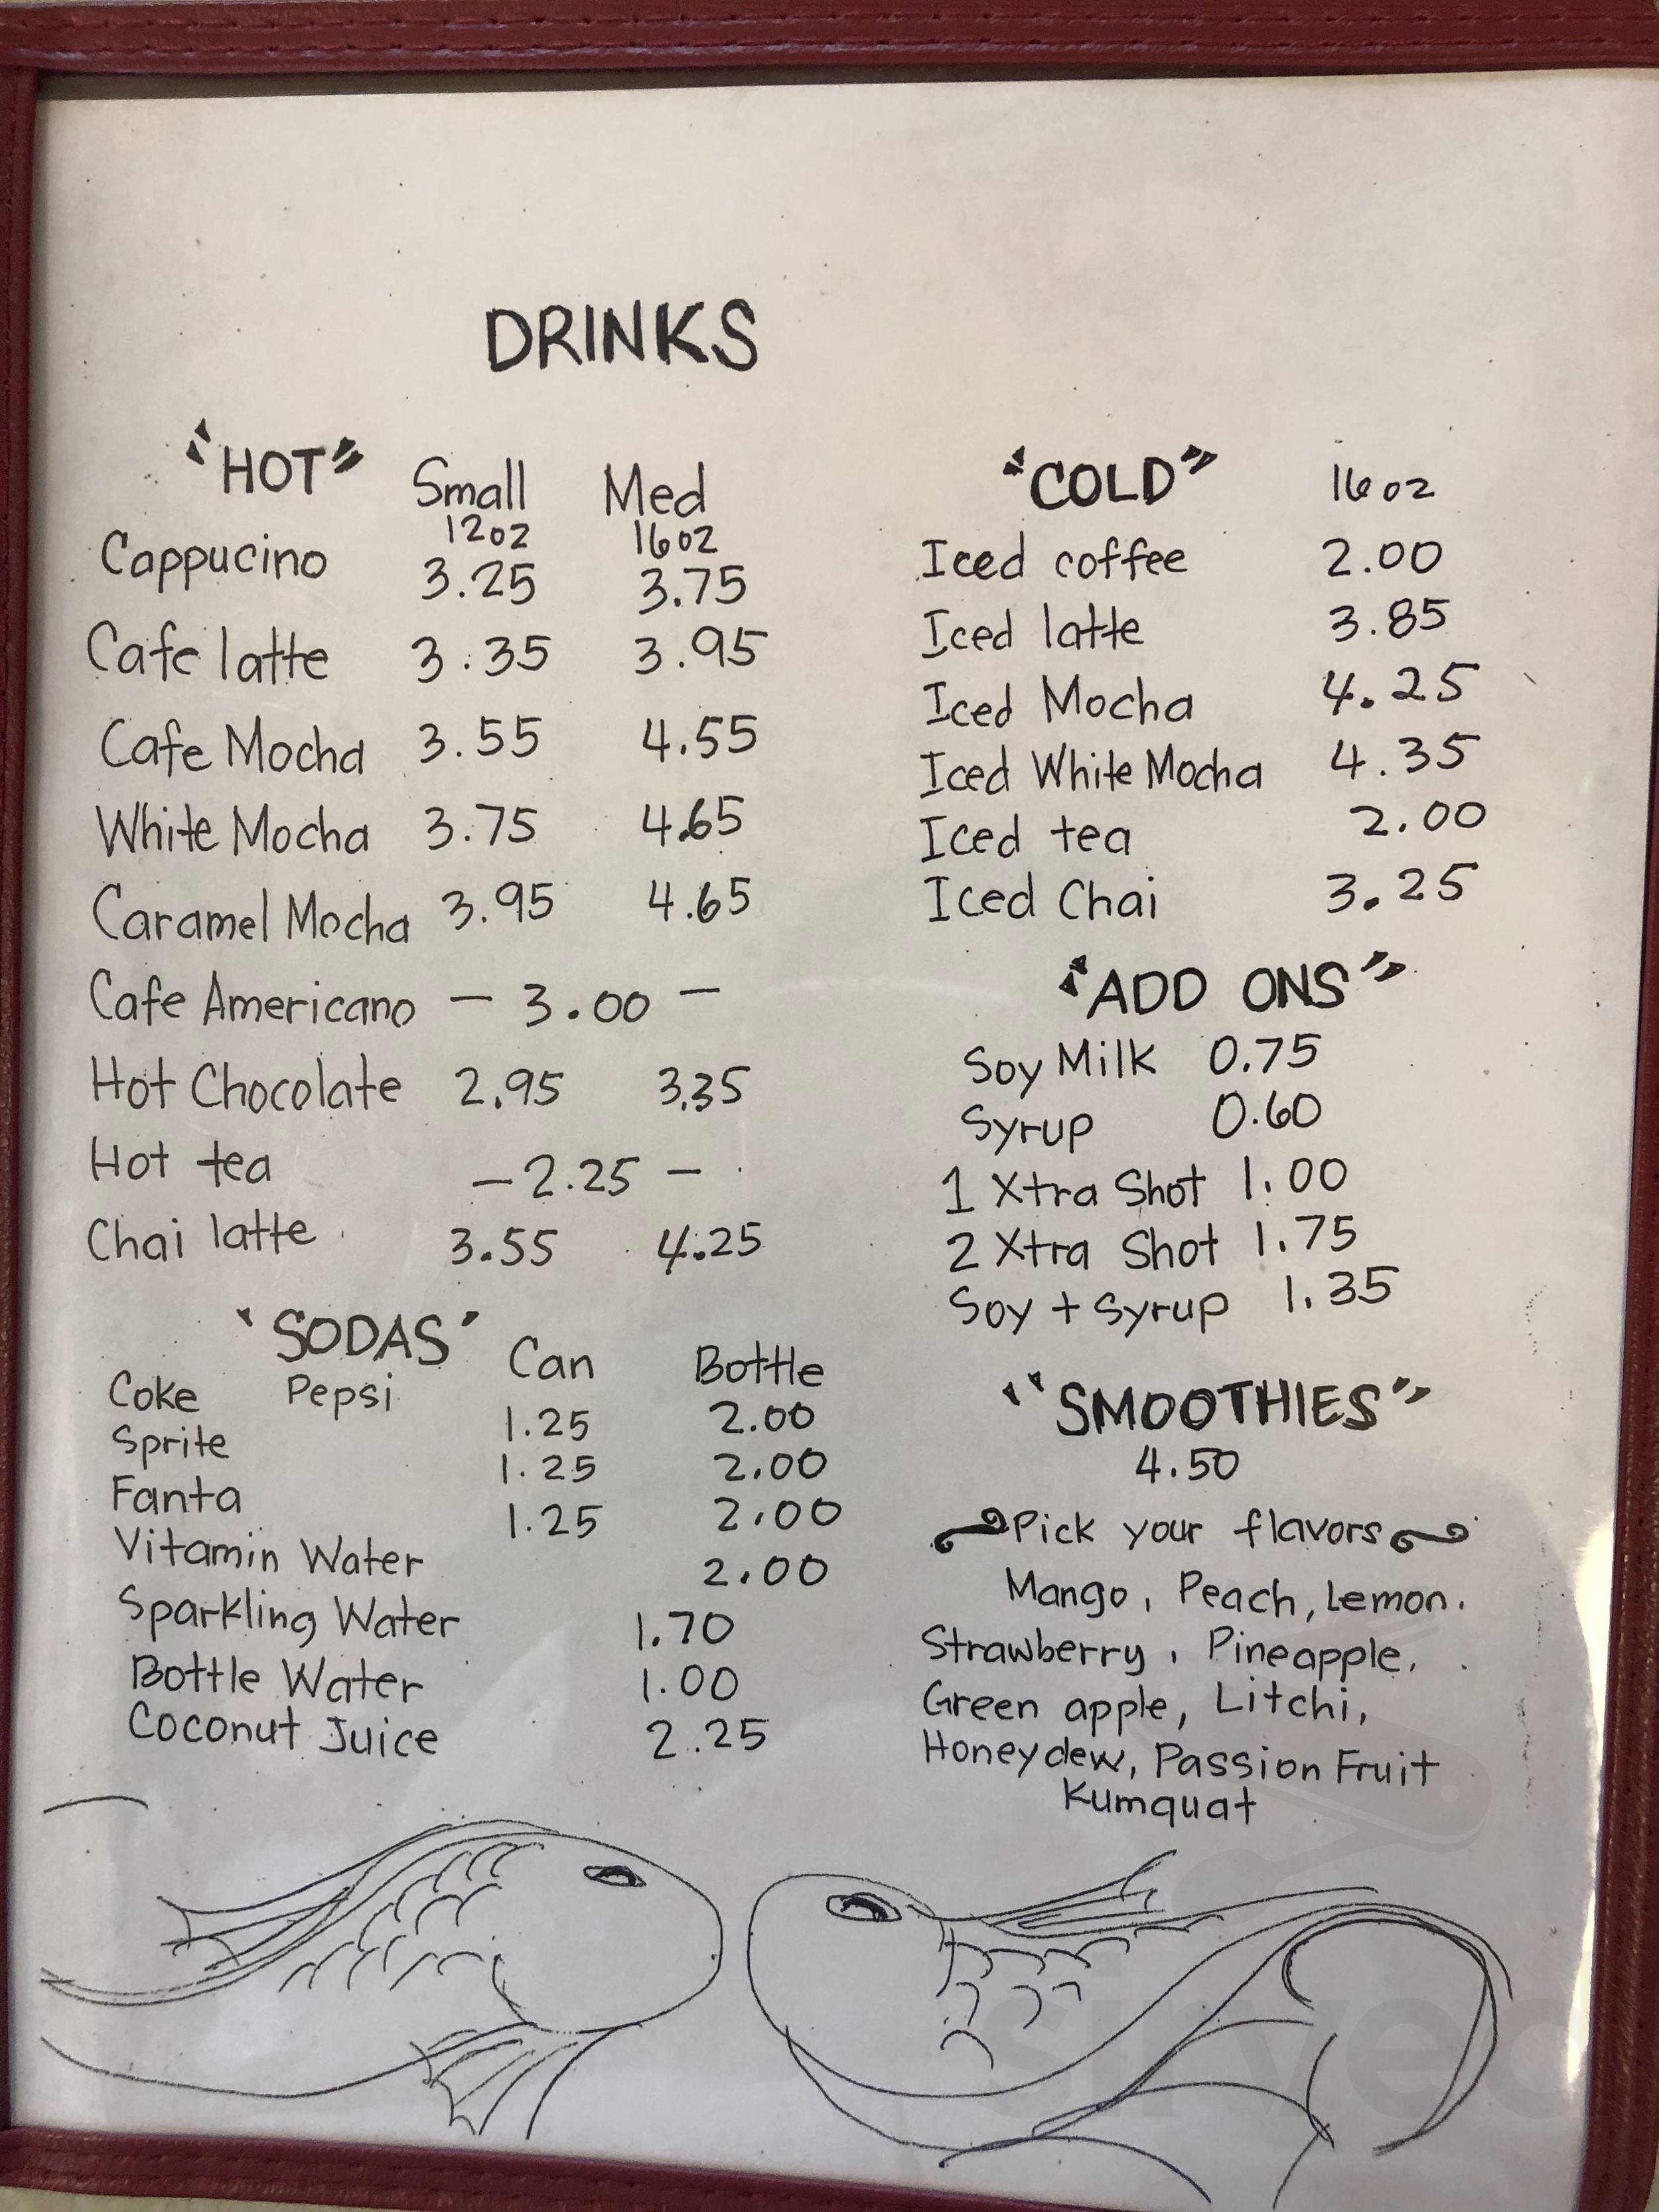 DRINKS
"HOT" Small Med
12oz 16oz
Cappucino 3.25 3.75
Cafe latte 3.35 3.95
Cafe Mocha 3.55 4.55
White Mocha 3.75 4.65
Caramel Mocha 3.95 4.65
Cafe Americano - 3.00 -
Hot Chocolate 2.95 3.35
Hot tea - 2.25 -
Chai latte 3.55 4.25
"SODAS" Can Bottle
Coke Pepsi 1.25 2.00
Sprite 1.25 2.00
Fanta 1.25 2.00
Vitamin Water 2.00
Sparkling Water 1.70
Bottle Water 1.00
Coconut Juice 2.25
"COLD" 16oz
Iced coffee 2.00
Iced latte 3.85
Iced Mocha 4.25
Iced White Mocha 4.35
Iced tea 2.00
Iced Chai 3.25
"ADD ONS"
Soy Milk 0.75
Syrup 0.60
1 Xtra Shot 1.00
2 Xtra Shot 1.75
Soy + Syrup 1.35
"SMOOTHIES"
4.50
Pick your flavors
Mango, Peach, Lemon.
Strawberry, Pineapple.
Green apple, Litchi,
Honeydew, Passion Fruit
Kumquat